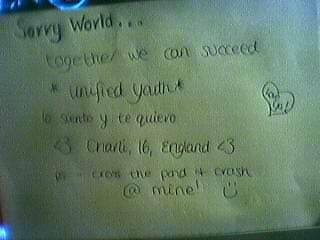 Sorry World...
together we can succeed
* unified youth*
lo siento y te quiero
<3 Charli, 16, England <3
ps - cross the pond & crash
@ mine! :)